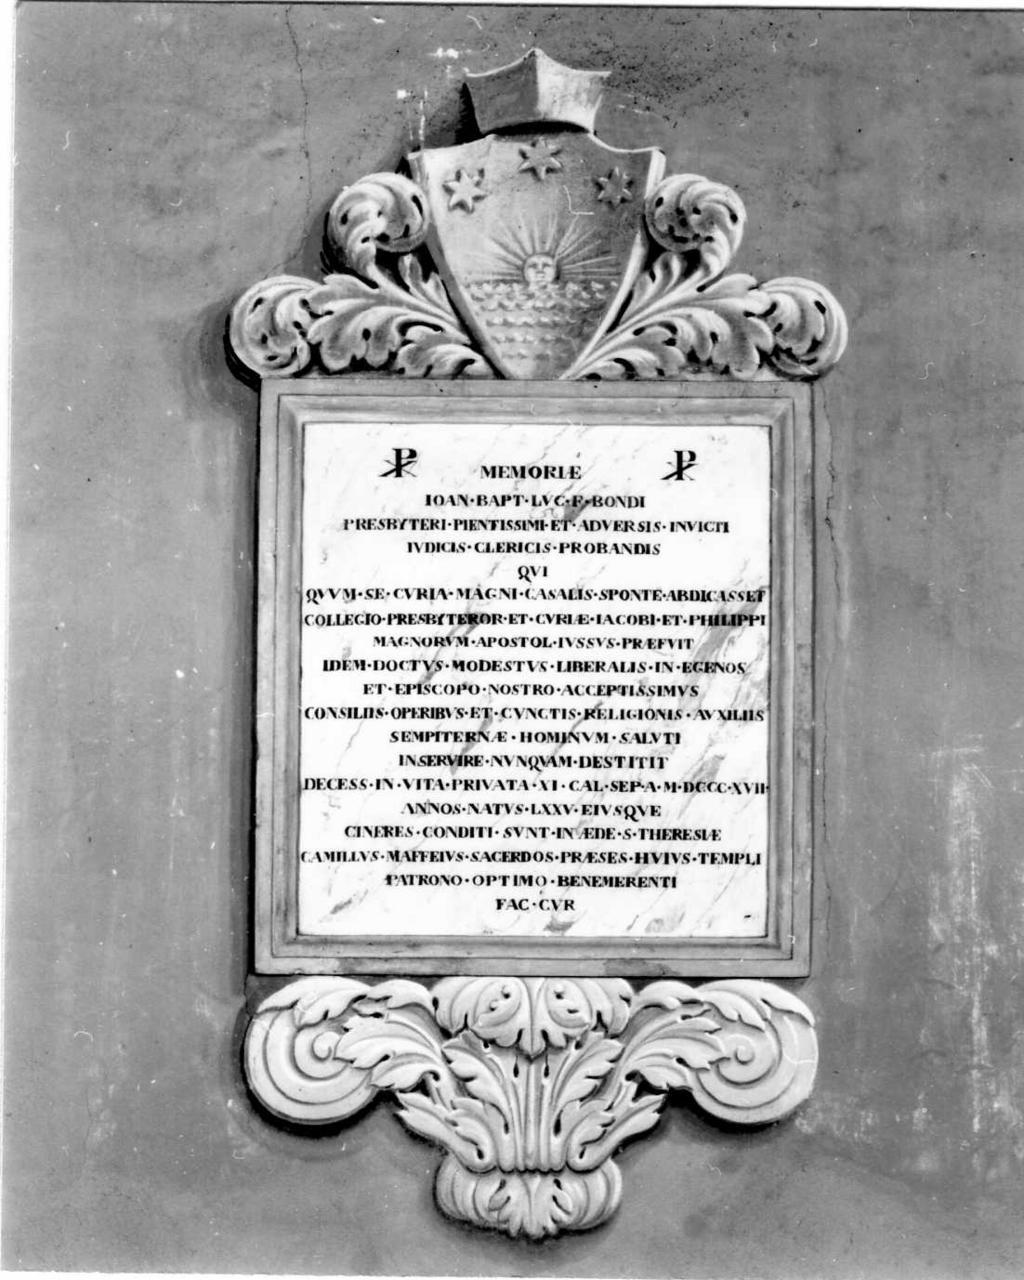 ☧ MEMORIÆ ☧
IOAN·BAPT·LVC·F·BONDI
PRESBYTERI·PIENTISSIMI·ET·ADVERSIS·INVICTI
IVDICIS·CLERICIS·PROBANDIS
QVI
QVVM·SE·CVRIA·MAGNI·CASALIS·SPONTE·ABDICASSET
COLLEGIO·PRESBYTEROR·ET·CVRIÆ·IACOBI·ET·PHILIPPI
MAGNORVM·APOSTOL·IVSSVS·PRÆFVIT
IDEM·DOCTVS·MODESTVS·LIBERALIS·IN·EGENOS
ET·EPISCOPO·NOSTRO·ACCEPTISSIMVS
CONSILIIS·OPERIBVS·ET·CVNCTIS·RELIGIONIS·AVXILIIS
SEMPITERNÆ·HOMINVM·SALVTI
INSERVIRE·NVNQVAM·DESTITIT
DECESS·IN·VITA·PRIVATA·XI·CAL·SEP·A·M·DCCC·XVII·
ANNOS·NATVS·LXXV·EIVSQVE
CINERES·CONDITI·SVNT·IN·ÆDE·S·THERESIÆ
CAMILLVS·MAFFEIVS·SACERDOS·PRÆSES·HVIVS·TEMPLI
PATRONO·OPTIMO·BENEMERENTI
FAC·CVR